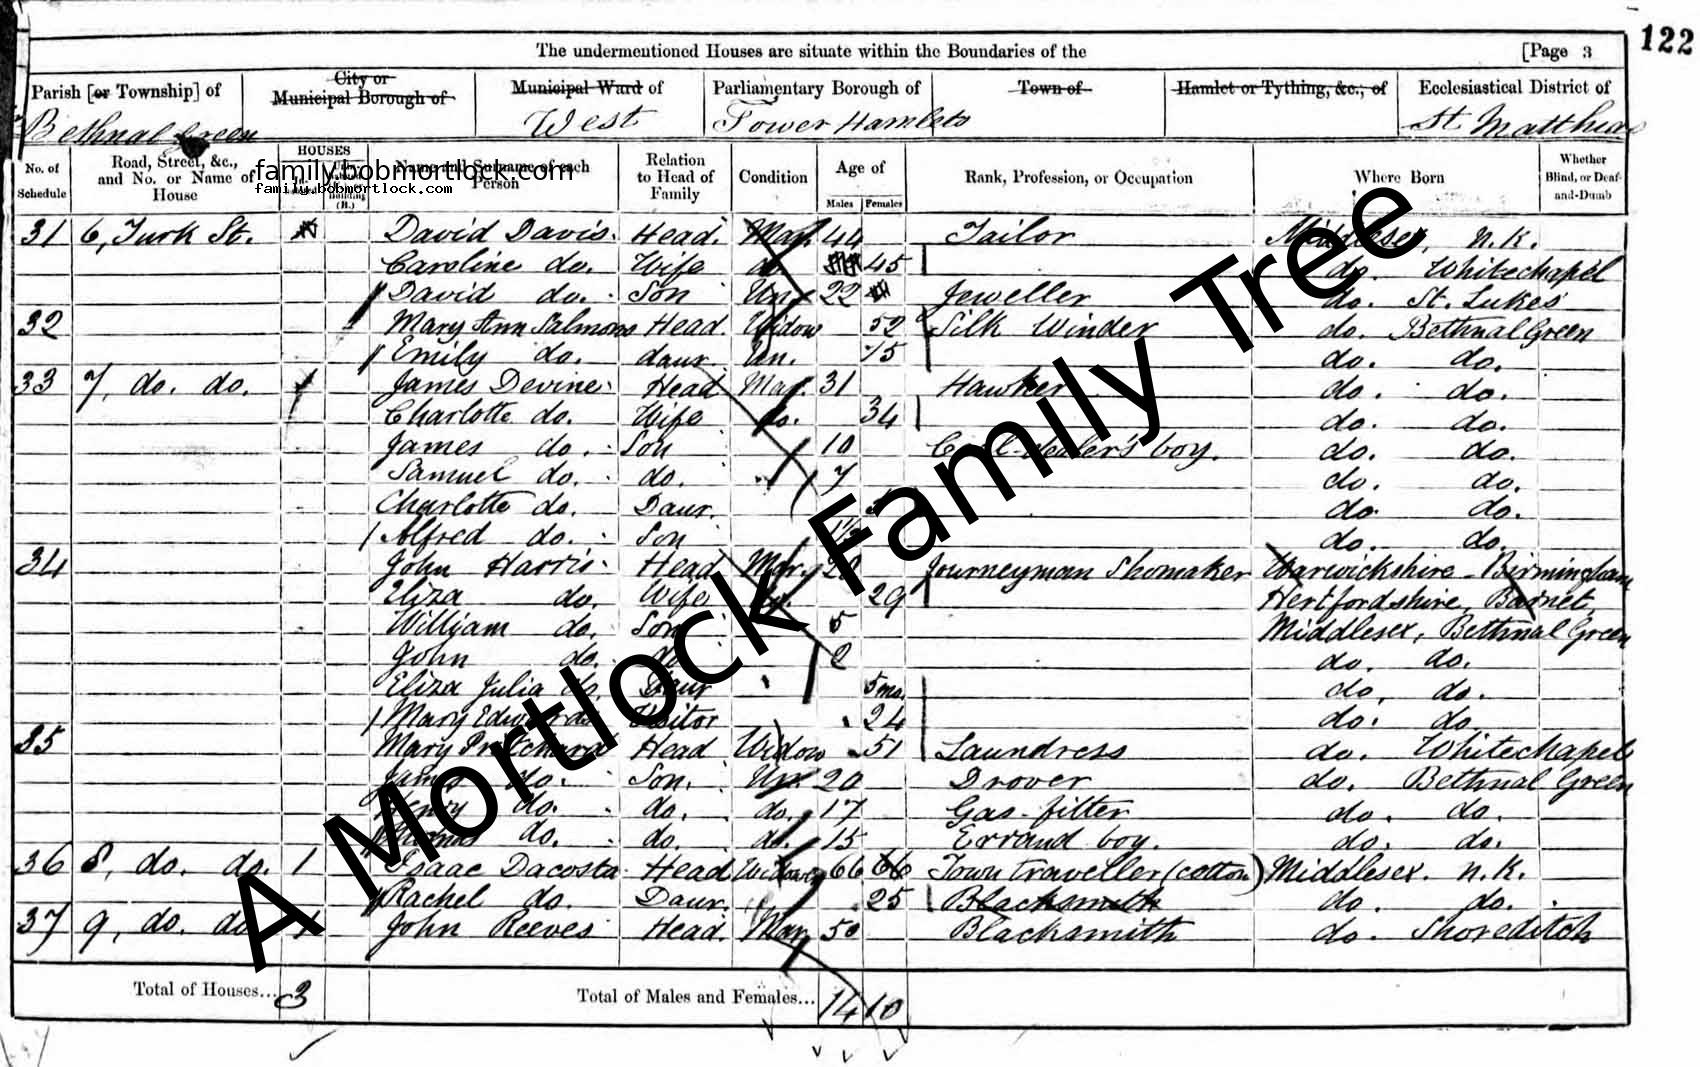 122
The undermentioned Houses are situate within the Boundaries of the [Page 3
Parish [or Township] of City or Municipal Borough of Municipal Ward of Parliamentary Borough of Town of Hamlet or Tything, &c., of Ecclesiastical District of
Bethnal Green West Tower Hamlets St. Matthias
No. of Schedule Road, Street, &c., and No. or Name of House HOUSES Name and Surname of each Person Relation to Head of Family Condition Age of Males Females Rank, Profession, or Occupation Where Born Whether Blind, or Deaf-and-Dumb
family.bobmortlock.com
family.bobmortlock.com
31 6, Turk St. David Davis Head. Mar. 44 Tailor Middlesex, N.K.
Caroline do. Wife do. 45 do. Whitechapel
David do. Son Un. 22 Jeweller do. St. Lukes
32 Mary Ann Salmons Head. Widow 52 Silk Winder do. Bethnal Green
Emily do. daur. Un. 15 do. do.
33 7, do. do. 1 James Devine Head Mar. 31 Hawker do. do.
Charlotte do. Wife do. 34 do. do.
James do. Son 10 boy. do. do.
Samuel do. do. 7 do. do.
Charlotte do. Daur. do. do.
Alfred do. Son do. do.
34 John Harris Head Mar. 28 Journeyman Shomaker Warwickshire - Birmingham
Eliza do. Wife do. 29 Hertfordshire, Barnet,
William do. Son 5 Middlesex, Bethnal Green
John do. do. 2 do. do.
Eliza Julia do. Daur 5 mo. do. do.
Mary Edwards Visitor 24 do. do
35 Mary Pritchard Head Widow 51 Laundress do. Whitechapel
James do. Son. Un. 20 Drover do. Bethnal Green
Henry do. do. do. 17 Gas-fitter do. do.
Thomas do. do. do. 15 Errand boy. do. do.
36 8, do. do. 1 Isaac Dacosta Head Widower 66 66 Town traveller (cotton) Middlesex. N.K.
Rachel do. Daur. 25 Blacksmith do. do.
37 9, do. do. 1 John Reeves Head. Mar. 50 Blacksmith do. Shoreditch
Total of Houses... 3 Total of Males and Females... 14 10
A Mortlock Family Tree